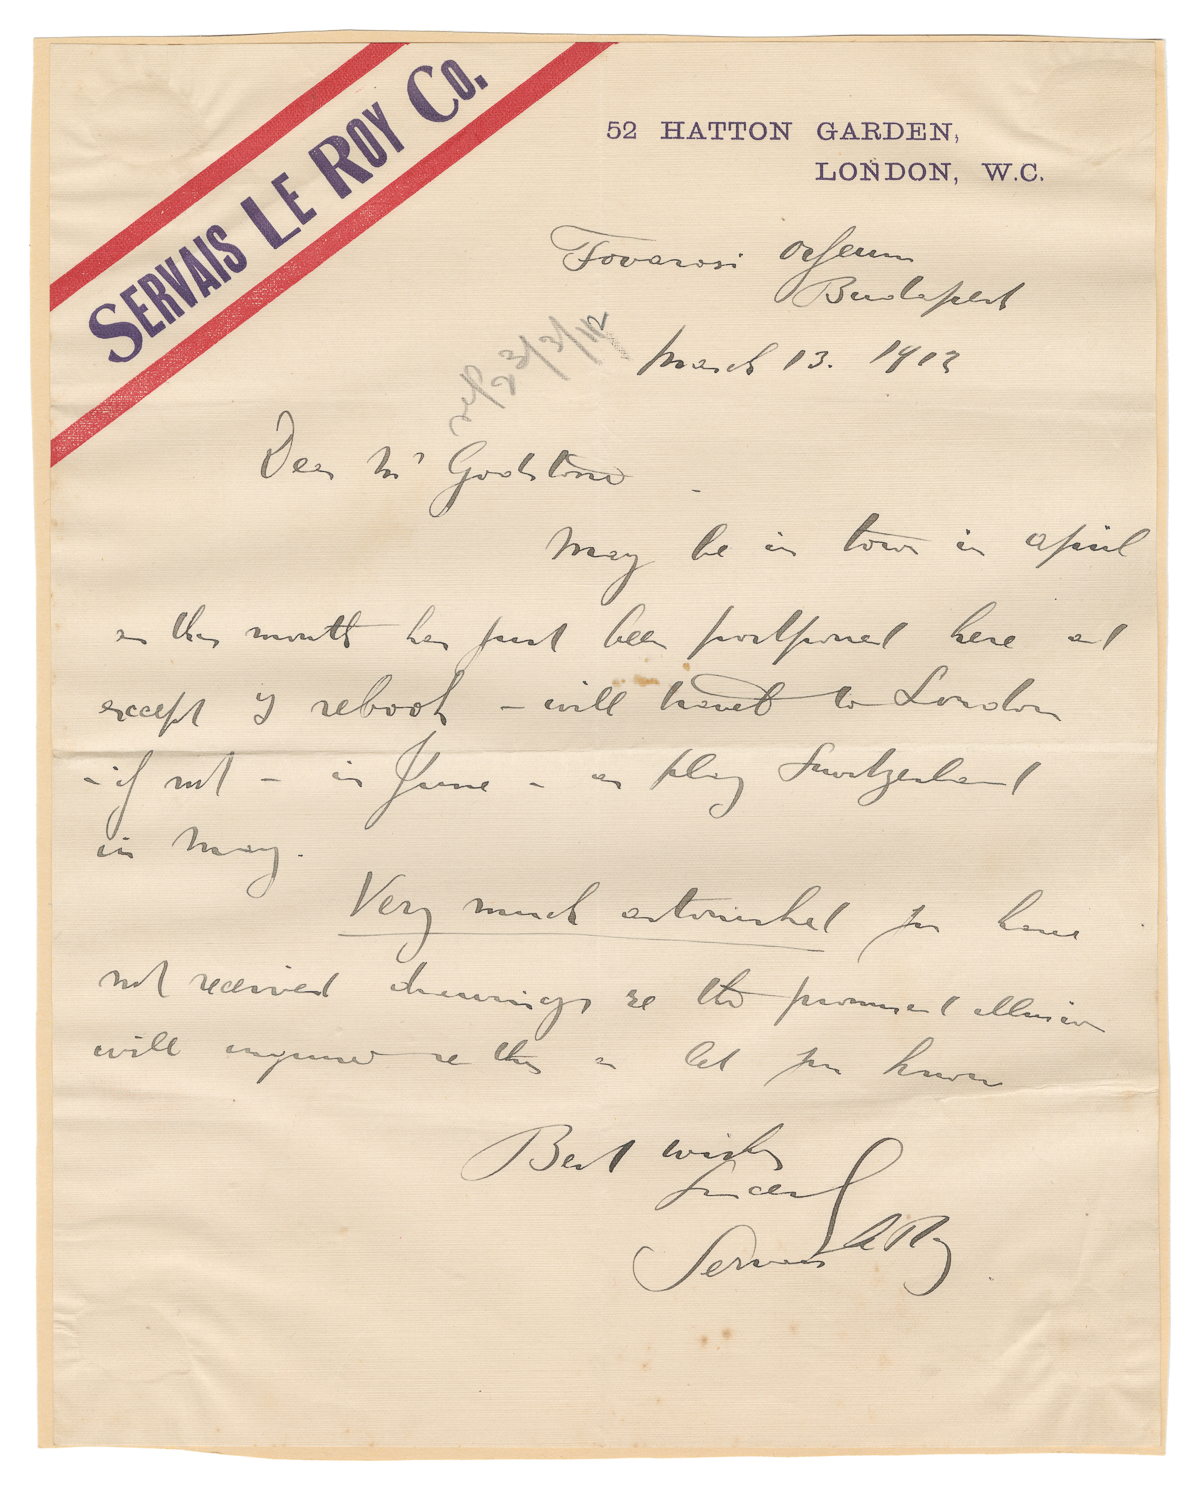 SERVAIS LE ROY CO.
52 HATTON GARDEN,
LONDON, W.C.
Fovarosi Orfeum
Budapest
March 13. 1912
rep 23/3/12
Dear Mr Godstone
May be in town in April
as this month has just been postponed here
except if rebook – will travel to London
– if not – in June – as play Switzerland
in May.
Very much astonished you have
not received drawings re the promised illusion
will enquire re this & let you know
Best wishes
Sincerely
Servais Le Roy